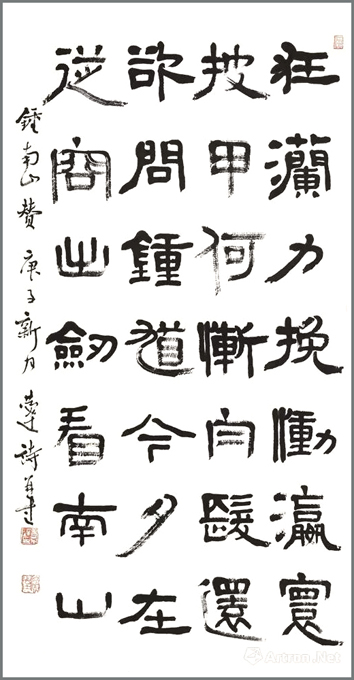 狂瀾力挽慟瀛寰
披甲何慚白髮還
欲問鍾馗今夕在
從容出劍看南山
鍾南山贊 庚子新月 詩并書
Artron.Net